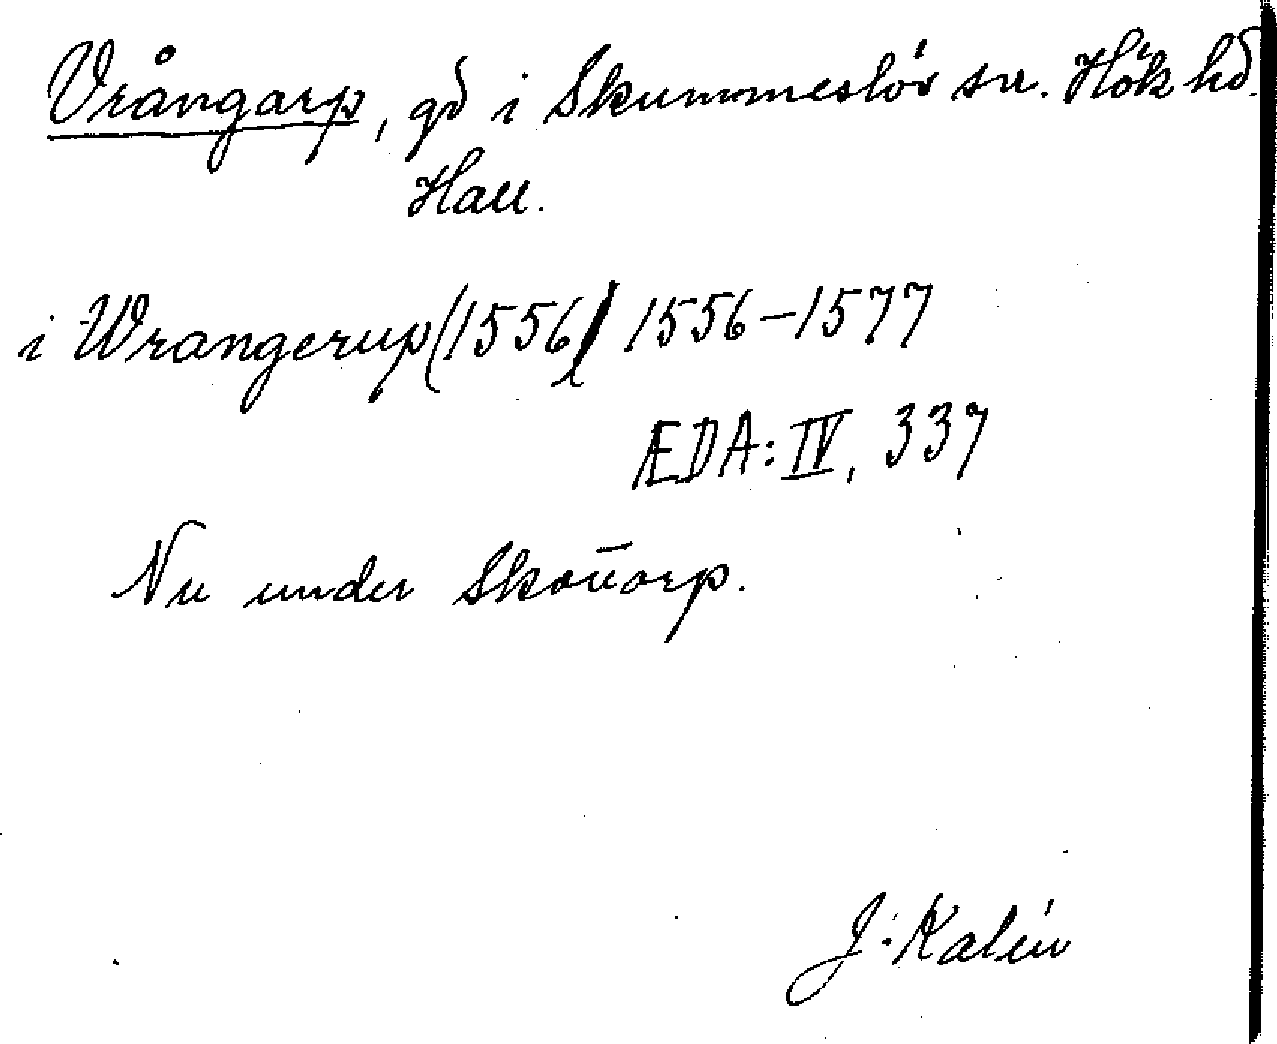 Vrångarp, gd i Skummeslöv sn. Hök hd.
Hall.
i Wrangerup (1556) 1556-1577
ÆDA: IV, 337
Nu under Skottorp.
J. Kalén